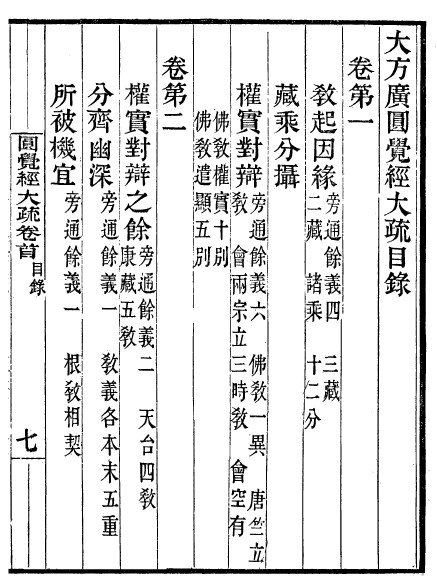 大方廣圓覺經大疏目錄
卷第一
敎起因緣 旁通餘義四　三藏
二藏　諸乘　十二分
藏乘分攝
權實對辯 旁通餘義六　佛敎一異　唐竺立
敎　會兩宗立三時敎　會空有
佛敎權實十別
佛敎遣顯五別
卷第二
權實對辯之餘 旁通餘義二　天台四敎
康藏五敎
分齊幽深 旁通餘義一　敎義各本末五重
所被機宜 旁通餘義一　根敎相契
圓覺經大疏卷首 目錄 七